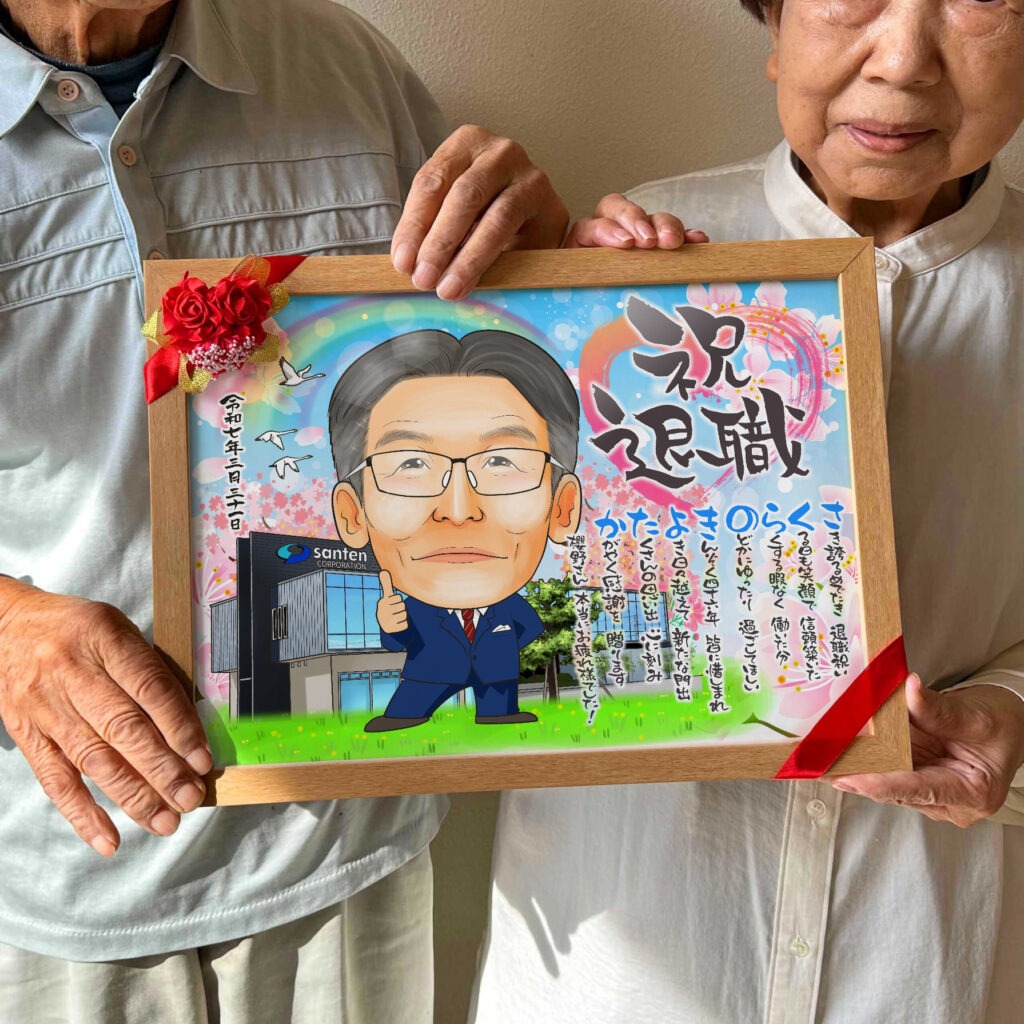 祝
退職
令和七年三月三十一日
santen
CORPORATION
さき誇る 退職祝い
くる日も笑顔で 信頼築きた
らくする暇なく 働いた分
のどかにゆったり 過ごしてほしい
きんぞく四十六年 皆に惜しまれ
よき日々越えて 新たな門出
たくさんの思い出 心に刻み
かがやく感謝を 贈ります
櫻野さん 本当にお疲れ様でした！